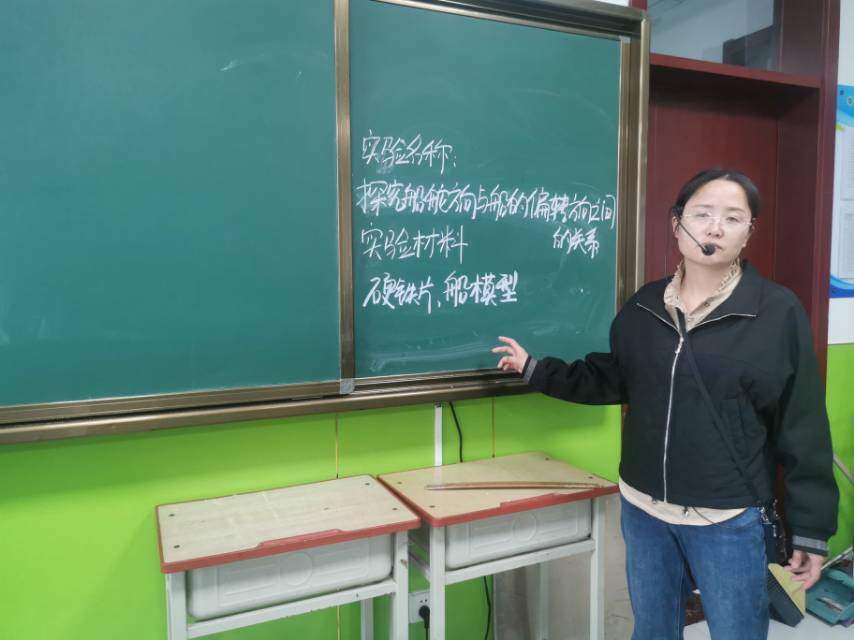 实验名称：
探究船舵方向与船的偏转方向之间
的关系
实验材料
硬铁片、船模型